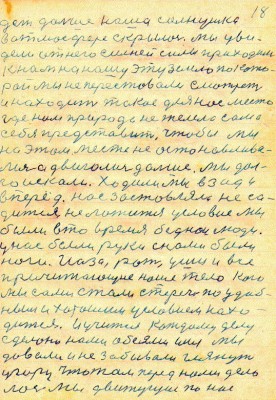 18
дет далше наша солнушка
в атмосфере скрылос. мы уви
дели от него силней силы приходим
к нам на нашу эту землю по кото
рой мы не перестовали смотрет
и находит такое для нас место
где нам природа не желно сама
себя представит, чтобы мы
на этом месте не остонавлива-
лися а двигалис далше. мы дол-
го искали. Ходили мы взад и
вперёд. нас застовляла не са-
дится не ложится условие мы
были в то время бедное люди.
у нас были руки с нами были
ноги. Глаза, рот, уши и все
причитающие наше тело Кого
мы сами стали стереч по удоб-
ным и хорошим условием нахо-
дится. И учится каждому делу
сделоно нами обсеми ими мы
довали и не забывали глянут
угору что там перед нами дело
лос мы движущие по нас